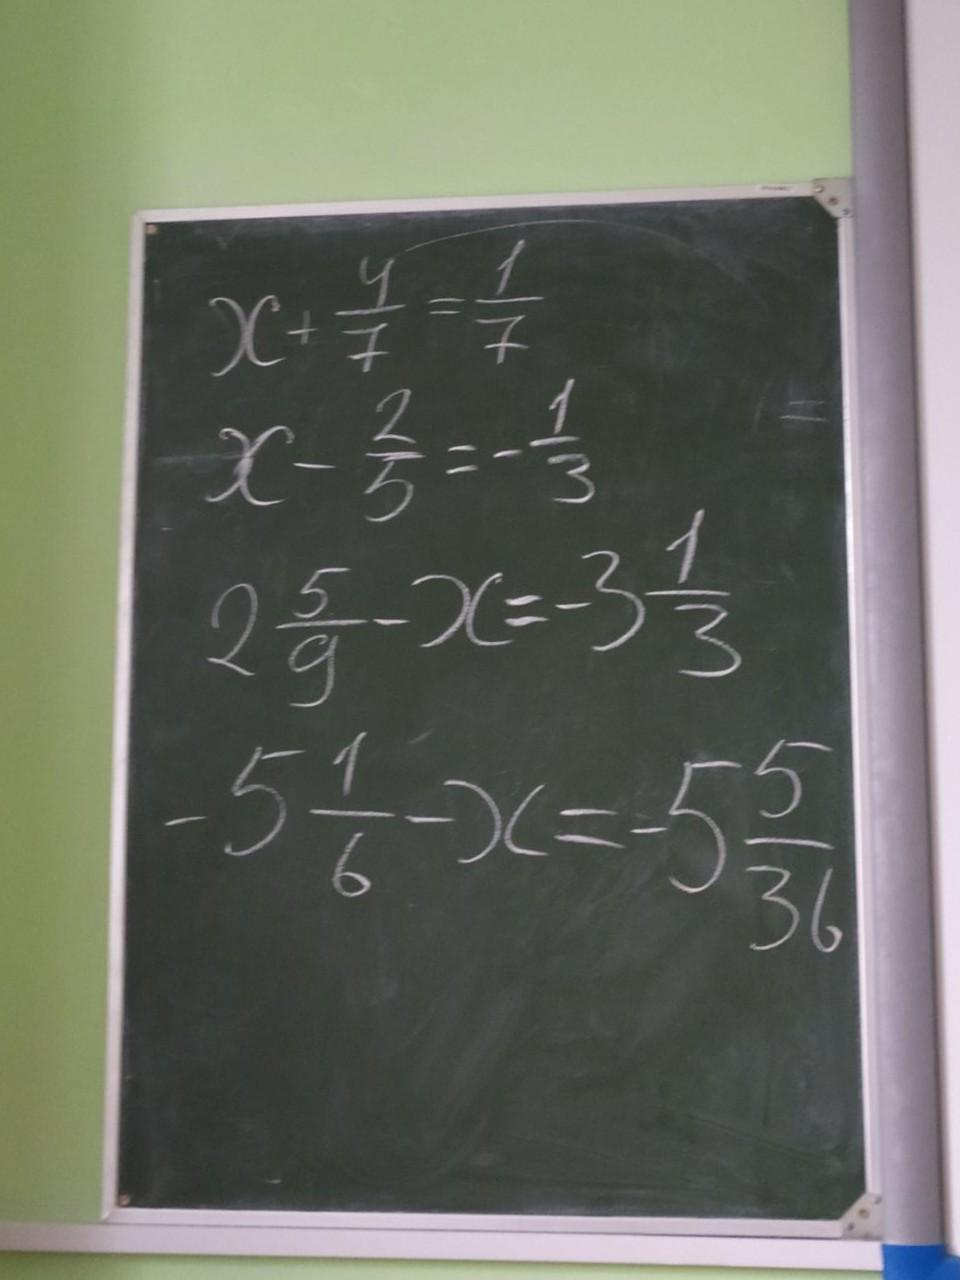 x + 4/7 = 1/7
x - 2/5 = - 1/3
2 5/9 - x = -3 1/3
-5 1/6 - x = -5 5/36